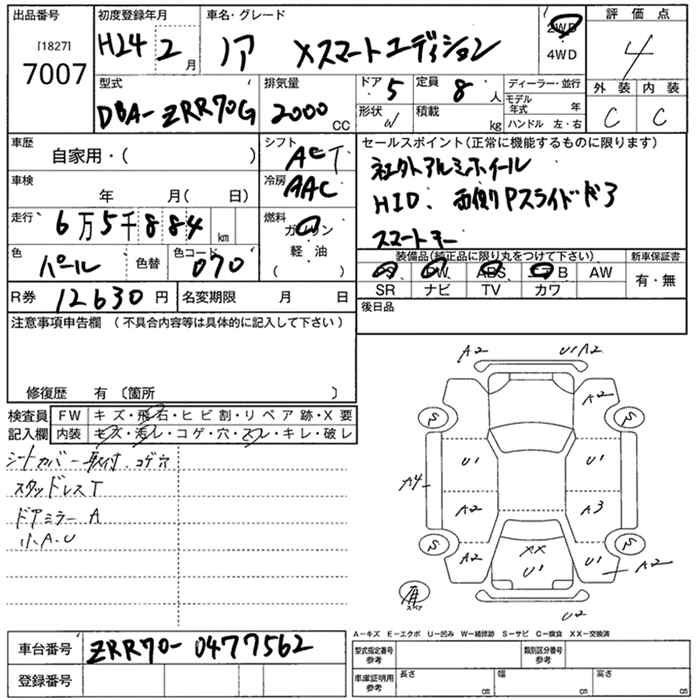 出品番号 初度登録年月 車名・グレード 2WD 評価点
[1827] H24 2月 ノア Xスマートエディション 4WD 4
7007
型式 排気量 ドア 5 定員 8人 ディーラー・並行 外装 内装
DBA-ZRR70G 2000CC 形状 W 積載 kg モデル年式 年 C C
ハンドル 左・右
車歴 シフト セールスポイント(正常に機能するものに限ります)
自家用・( ) ACT 社外アルミホイール
車検 冷房 HID. 両側Pスライドドア
年 月( 日) AAC スマートキー
走行 6万5千884km 燃料 ガソリン
軽・油
色 パール 色替 色コード 070 装備品(純正品に限り丸をつけて下さい) 新車保証書
PS PW ABS エアB AW 有・無
R券 12630円 名変期限 月 日 SR ナビ TV カワ
注意事項申告欄 (不具合内容等は具体的に記入して下さい) 後日品
修復歴 有 〔箇所 〕
検査員 FW キズ・飛石・ヒビ割・リペア跡・X要
記入欄 内装 キズ・汚レ・コゲ・穴・スレ・キレ・破レ
シートカバー取付.コゲ穴
スタッドレスT
ドアミラーA
小A.U
A2 U1A2
A2
S S
U1 U1
A4
A2 A3
S S
A2 XX U1 A2
U1
有 スペア
U2
A-キズ E-エクボ U-凹み W-補修跡 S-サビ C-腐食 XX-交換済
車台番号 ZRR70-0477562 型式指定番号 参考 類別区分番号 参考
登録番号 車庫証明用 参考 長さ cm 幅 cm 高さ cm